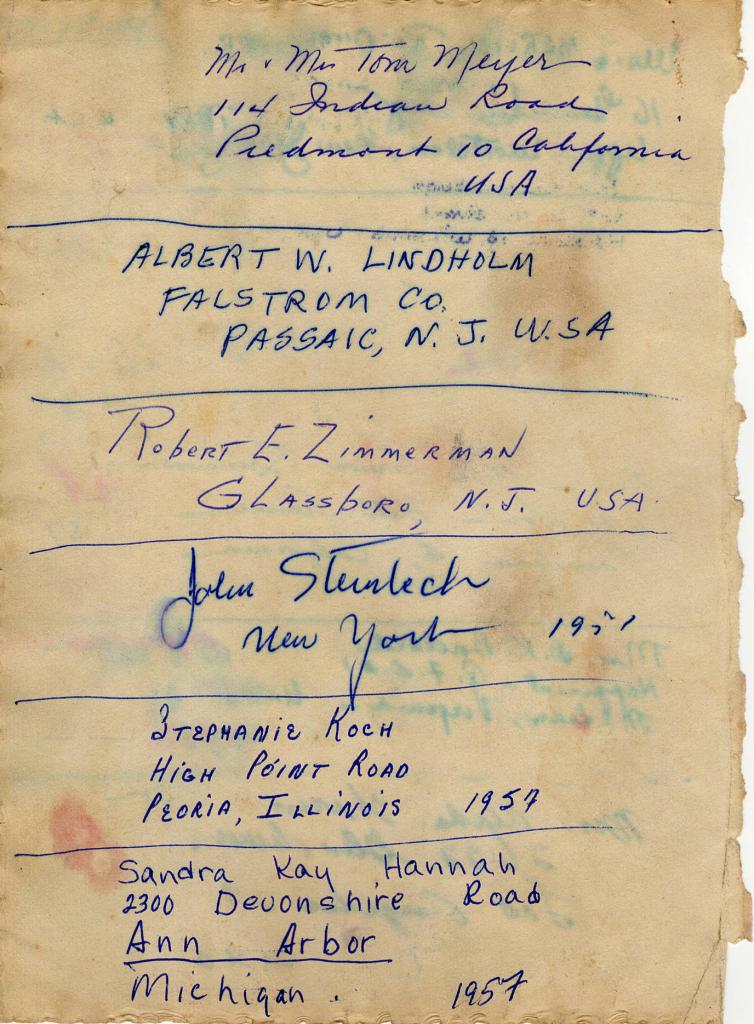 Mr & Mrs Tom Meyer
114 Indian Road
Piedmont 10 California
USA
ALBERT W. LINDHOLM
FALSTROM CO.
PASSAIC, N. J. U.S A
Robert E. Zimmerman
Glassboro, N.J. USA.
John
New York 1951
Stephanie Koch
High Point Road
Peoria, Illinois 1957
Sandra Kay Hannah
2300 Devonshire Road
Ann Arbor
Michigan. 1957